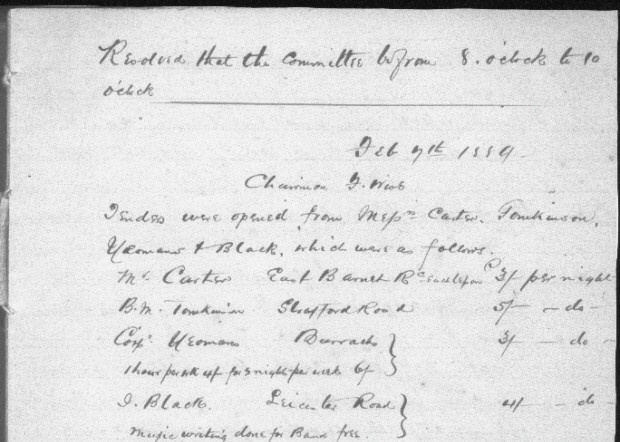 Resolved that the Committee be from 8. o'clock to 10
o'clock
Feb 7th 1889.
Chairman F. Webb
Tenders were opened from Messrs Carter. Tomkinson,
Yeomans & Black, which were as follows.
Mr Carter East Barnet Rd 3/ per night
B.M. Tomkinson Strafford Road 5/ - do -
Corpl Yeomans Barracks 3/ - do -
1 hour per wk for night per week 6/
J. Black. Leicester Road 4/ - do -
music writing done for Band free.